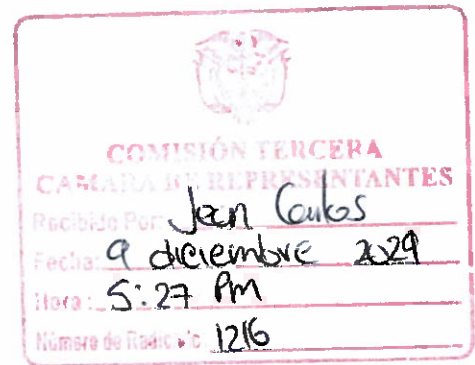 COMISIÓN TERCERA
CAMARA DE REPRESENTANTES
Recibido Por: Jean Carlos
Fecha: 9 diciembre 2024
Hora: 5:27 PM
Número de Radicado 1216